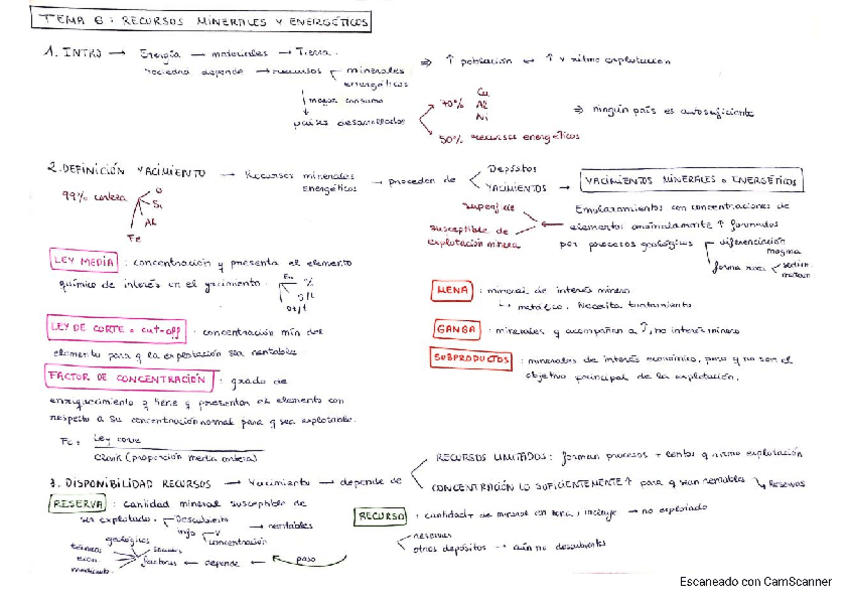 TEMA 6: RECURSOS MINERALES Y ENERGÉTICOS
1. INTRO → Energía — materiales → Tierra.
Sociedad depende → recursos minerales energéticos ⇒ ↑ población ↔ ↑ v ritmo explotación
↓ mayor consumo
países desarrollados
70% Cu Al Ni
50% recursos energéticos
⇒ ningún país es autosuficiente
2. DEFINICIÓN YACIMIENTO → Recursos minerales energéticos → proceden de Depósitos
YACIMIENTOS → YACIMIENTOS MINERALES o ENERGÉTICOS
99% corteza O Si Al Fe
superf de
susceptible de
explotación minera
con concentraciones de
elementos anómalamente ↑ formados
por procesos geológicos diferenciación magma
forma roca sedim.
LEY MEDIA: concentración q presenta el elemento
químico de interés en el yacimiento. En %
g/t
MENA: mineral de interés minero
↳ metálico. Necesita tratamiento
LEY DE CORTE o cut-off: concentración mín del
elemento para q la explotación sea rentable
GANGA: minerales q acompañan a ↑, no interés minero
SUBPRODUCTOS: minerales de interés económico, pero q no son el
objetivo principal de la explotación.
FACTOR DE CONCENTRACIÓN: grado de
enriquecimiento q tiene q presentar el elemento con
respecto a su concentración normal para q sea explotable.
Fc = Ley corte
Clark (proporción media corteza)
3. DISPONIBILIDAD RECURSOS → Yacimiento → depende de
RECURSOS LIMITADOS: forman procesos + lentos q ritmo explotación
CONCENTRACIÓN LO SUFICIENTEMENTE ↑ para q sean rentables ↳ Reservas
RESERVA: cantidad mineral susceptible de
ser explotado. Descubierto
concentración → rentables
RECURSO: cantidad + de mineral con , incluye → no explotado
reservas
otros depósitos → aún no descubiertos
geológicos
técnicos
sociales
factores ← depende ← paso
Escaneado con CamScanner